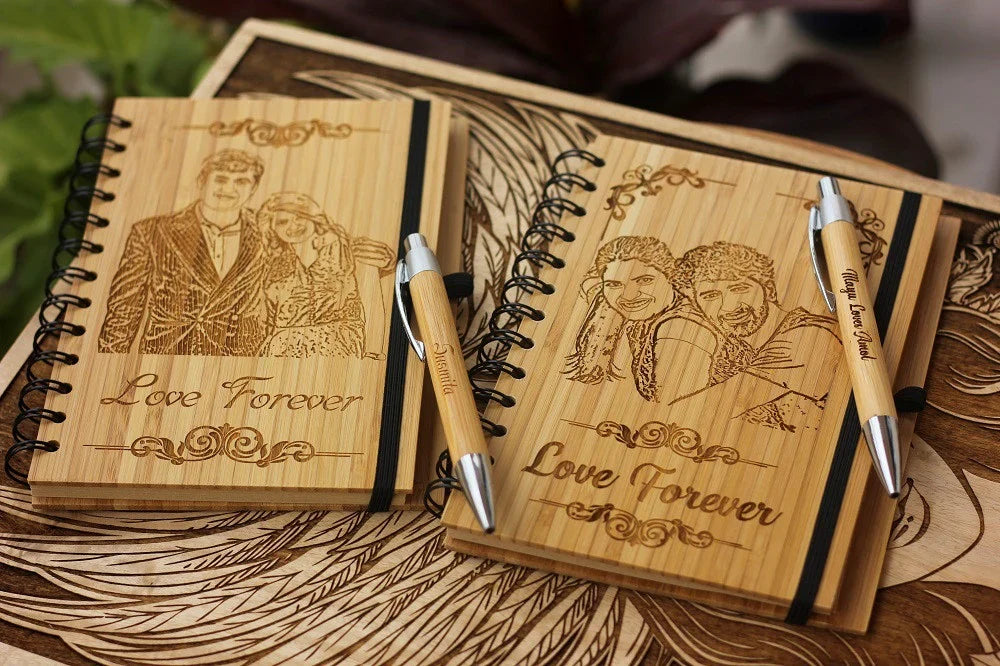 Love Forever
Sushila
Love Forever
Mayu Loves Amol